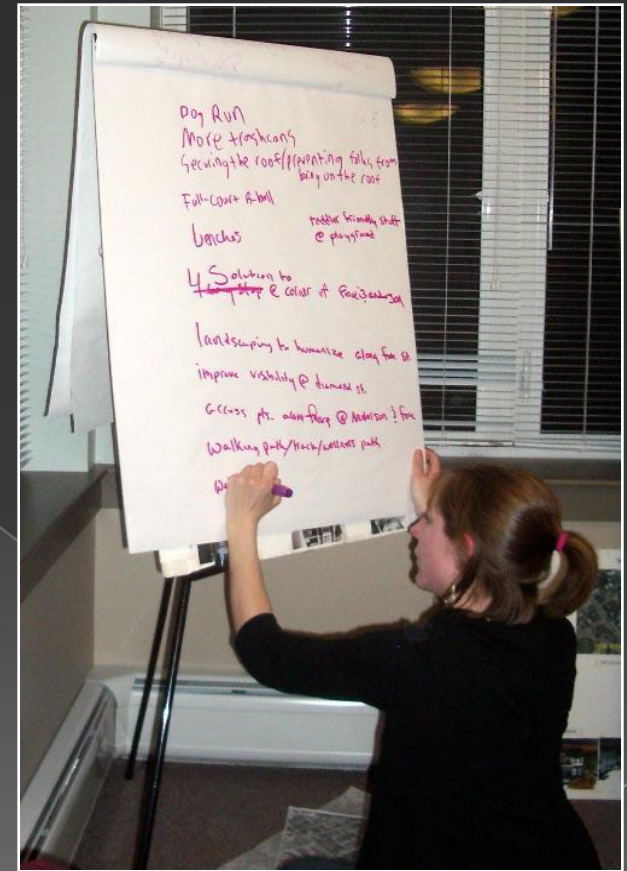 Dog Run
More trashcans
Securing the roof/preventing folks from
being on the roof
Full-Court B-ball
benches
toddler friendly stuff
@ playground
4 Solution to
@ corner of Fox & anderson
landscaping to humanize along fox st.
improve visibility @ diamond st.
access pts. along @ Anderson & fox
Walking path/track/wellness path